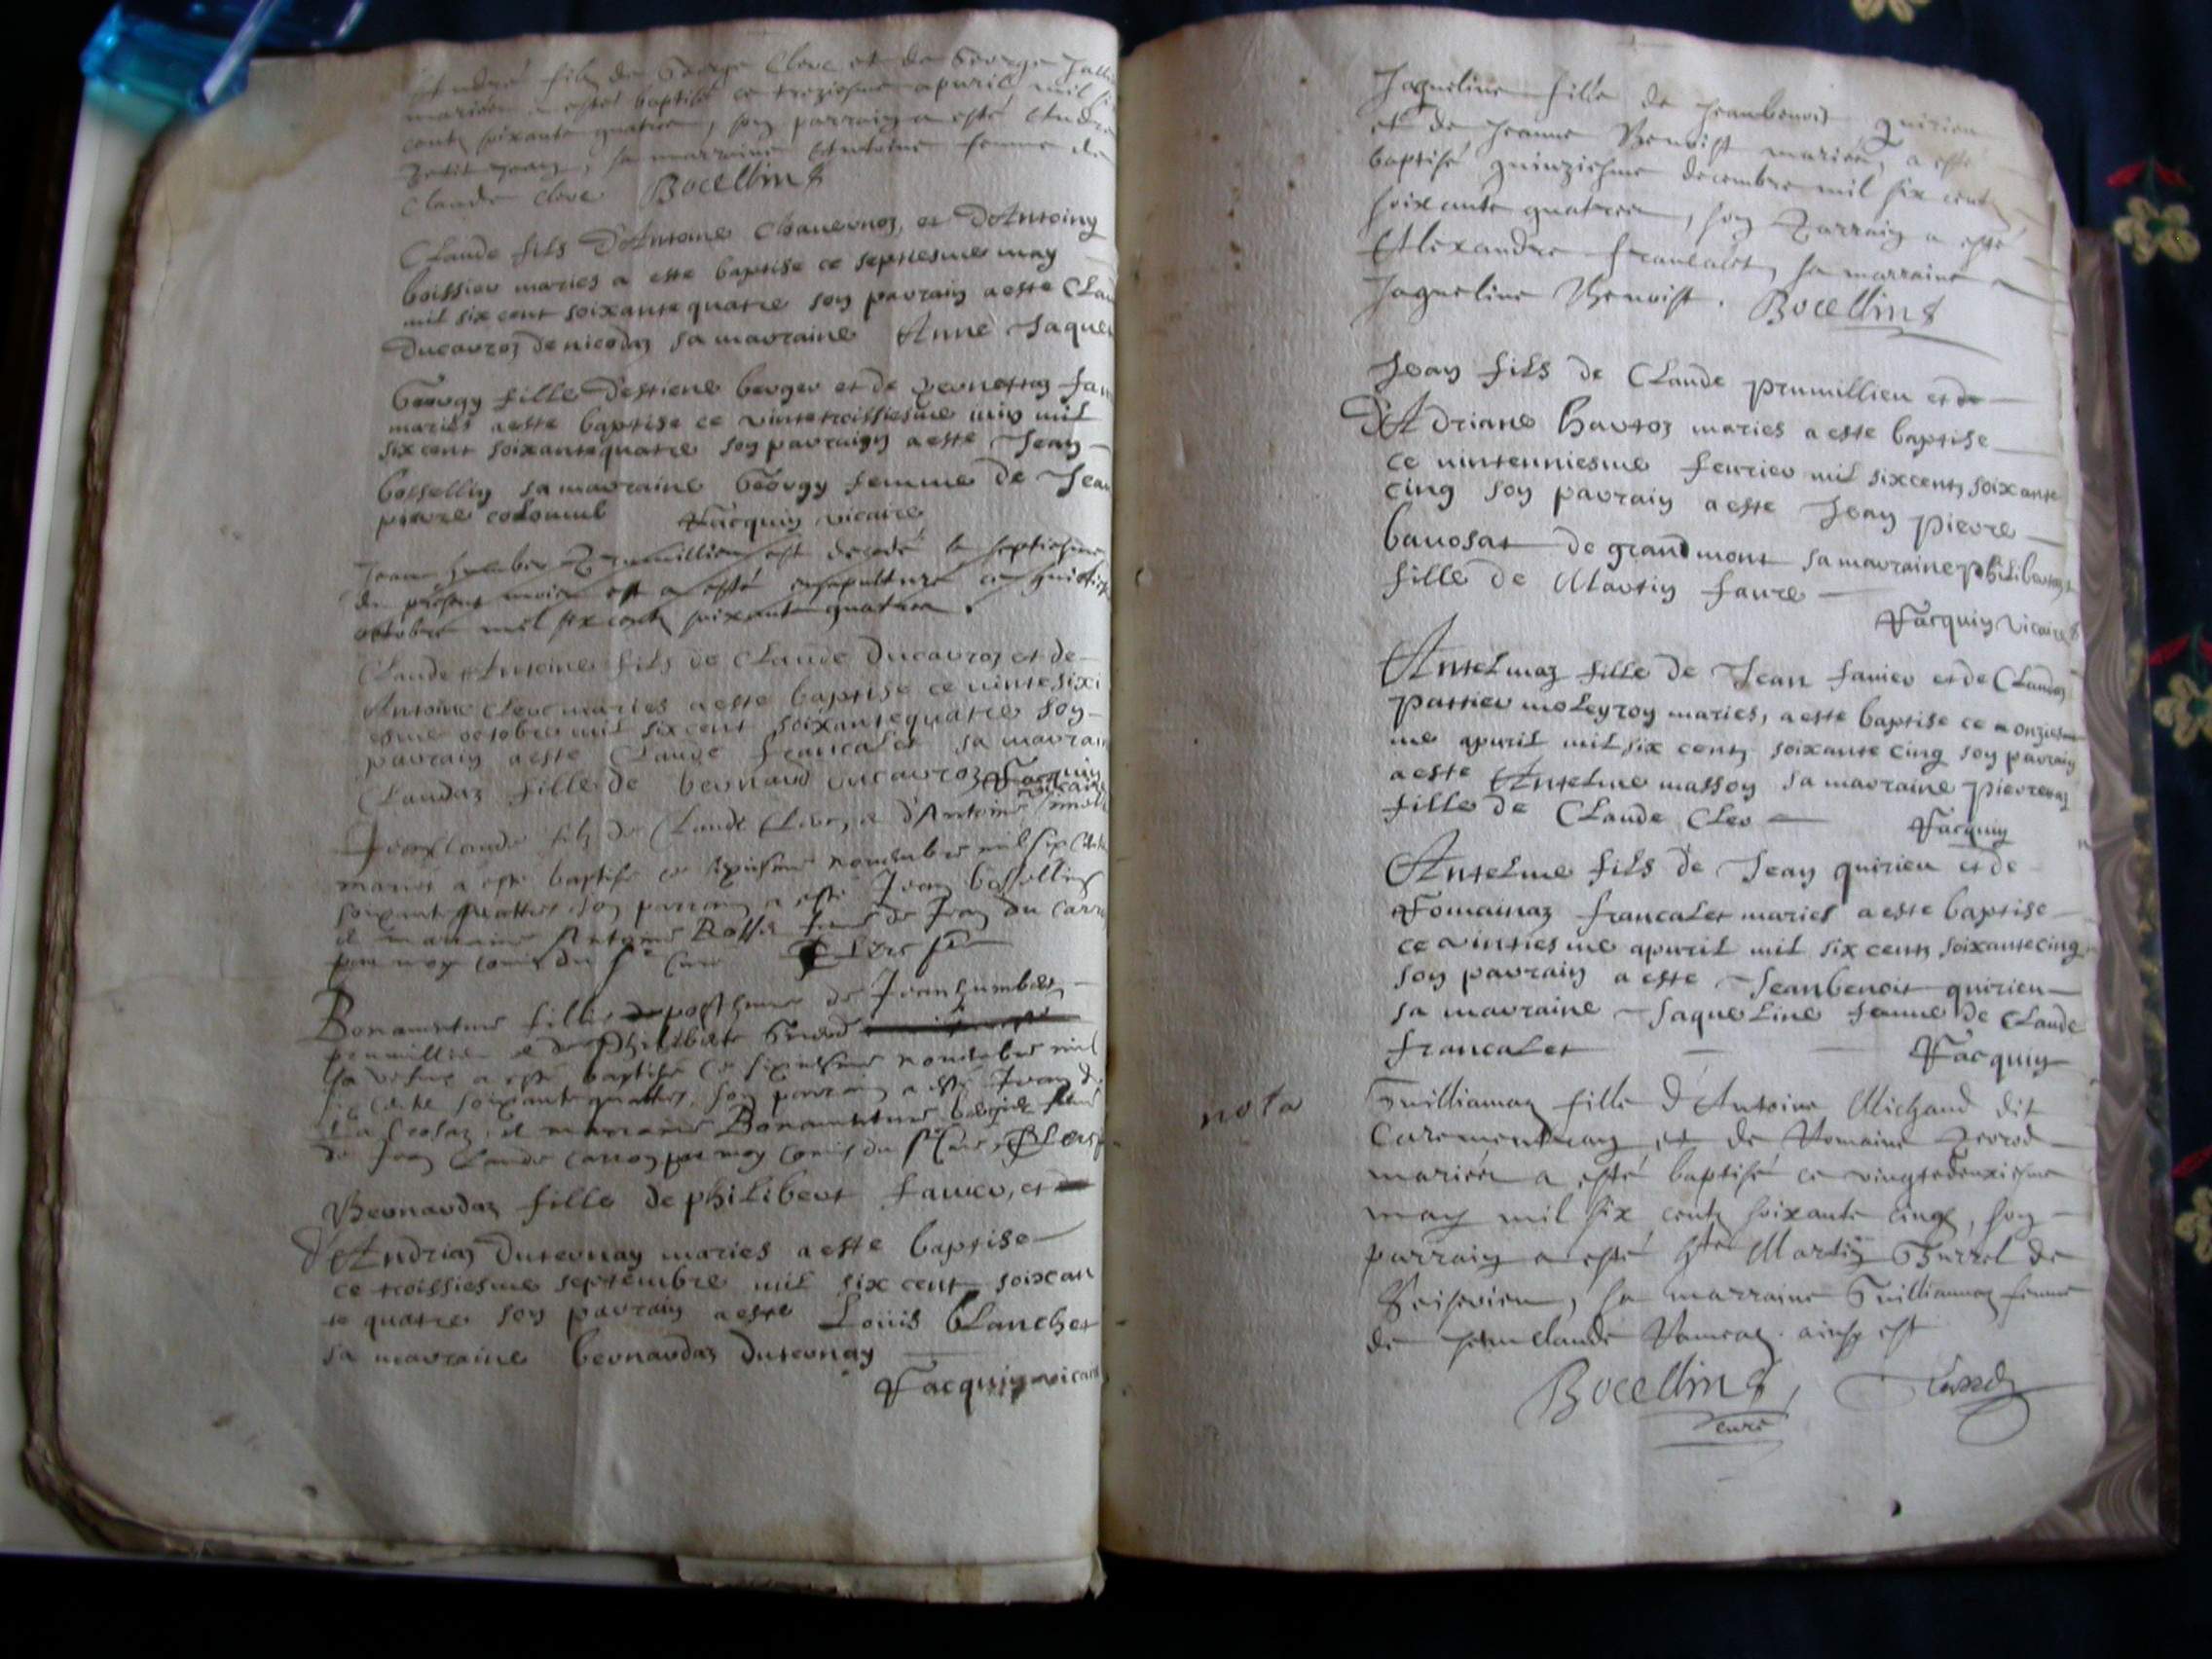 André fils de George Cleve et de George
mariés a esté baptisé ce treziesme apuril mil
cents soixante quatre, son parrain a esté Andre
petit Jean, sa marraine Antoine femme de
Claude Cleve Bocellins
Claude fils D'Antoine Chauevnoz, et D'Antoiny
boissieu maries a este baptise ce septiesme may
mil six cent soixante quatre son parrain a este Clau
Ducavroz de nicodaz sa marraine Anne Jaque
Georgy fille D'estiene berger et de pernettaz fa
mariés a este baptise ce vintetroissiesme iuin mil
six cent soixantequatre son parraign a este Jean
bossellin sa marraine Georgy femme de Jean
pierre colomb Facquin vicaire
Jean humber prumillieu est decedé le septiesme
du présent mois est a esté ensepulturé
octobre mil six cents soixante quatre.
Claude Antoine fils de Claude Ducavroz et de
Antoine Cleve maries a este baptise ce vintesixi
esme octobre mil six cent soixantequatre son
parrain a este Claude francalet sa marrain
Claudaz fille de bernard ducavroz Facquin
vicaire
Jean claude filz de Claude Cleve, et d'Antoine
mariés a esté baptisé ce sixiesme nouembre mil six cents
soixante quattre son parrain a esté Jean bossellin
et marraine Antoine Rosset feme de Jean du carr
par moy comis du Sr Curé
Bonauenture fille posthume de Jean humbert
prumillieu et de Philiberte
sa vefue a esté baptisé ce sixiesme nouembre mil
six cents soixante quattre, son parrain a esté Jean
et marraine Bonauenture bergier feme
de Jean Claude carroz par moy comis du Sr Curé
Bernardaz fille de philibert faurer, et
d'Andriaz Duternay maries a este baptise
ce troissiesme septembre mil six cent soixan
te quatre son parrain a este Louis blanchet
sa marraine bernardaz duternay
Facquin vicaire
Jaqueline fille de Jeanbenoit quirieu
et de Jeanne Benoist mariés, a esté
baptisé quinziesme decembre mil six cents
soixante quatre, son parrain a esté
Allexandre francalet, sa marraine
Jaqueline Benoist. Bocellins
Jean fils de Claude prumillieu et de
d'Adriane hartoz maries a este baptise
ce uintenniesme feurier mil six cents soixante
cinq son parrain a este Jean pierre
bavosat de grandmont sa marraine philibertaz
fille de Martin faure
Facquin vicaire
Antelmaz fille de Jean fauier et de Claudaz
pattieu moleyron maries, a este baptise ce onziesme
me apuril mil six cents soixante cinq son parrain
a este Antelme masson sa marraine pierrenaz
fille de Claude Cleo
Facquin
Antelme fils de Jean quirieu et de
Tomainaz francalet maries a este baptise
ce vintiesme apuril mil six cents soixantecinq
son parrain a este Jeanbenoit quirieu
sa marraine Jaqueline femme de Claude
francalet Facquin
nota
Guilliamaz fille d'Antoine Michaud dit
et de Romaine
mariés a esté baptisé ce vingtedeuxiesme
may mil six cents soixante cinq, son
parrain a esté hte Martin Burrel de
Seiserieu, sa marraine Guilliamaz femme
de Jeanclaude Rameaz. ainsy est
Bocellins,
curé